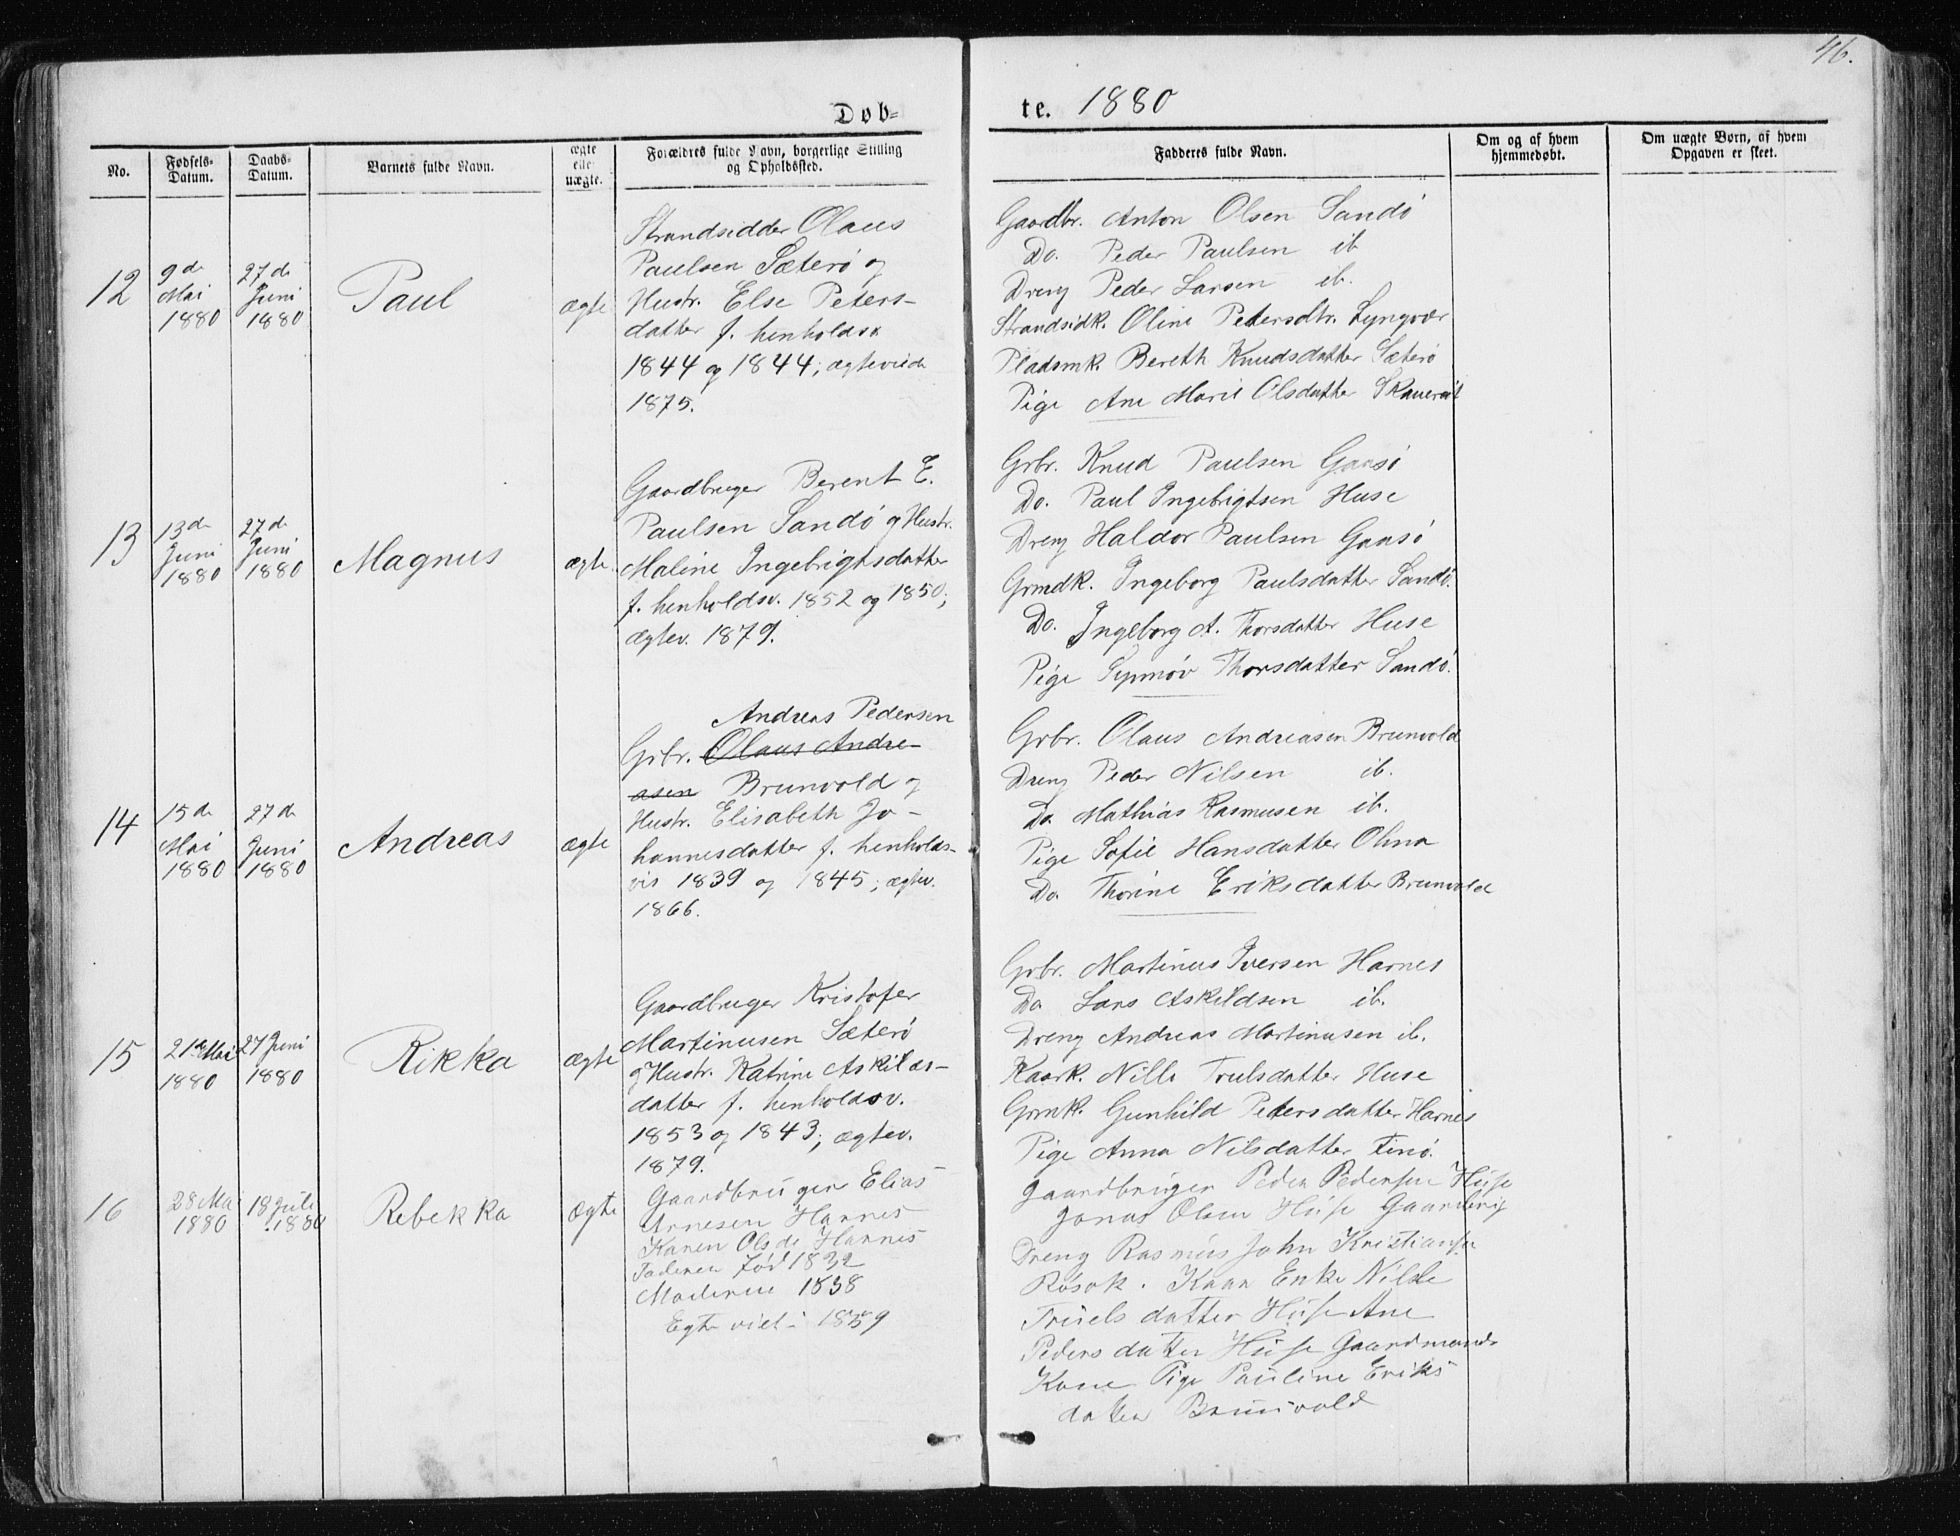 46.
Døb=
te. 1880
No.
Fødsels-
Datum.
Daabs-
Datum.
Barnets fulde Navn.
ægte
eller
uægte.
Forældres fulde Navn, borgerlige Stilling
og Opholdssted.
Fadderes fulde Navn.
Om og af hvem
hjemmedøbt.
Om uægte Børn, af hvem
Opgaven er skeet.
12
9de
Mai
1880
27de
Juni
1880
Paul
ægte
Strandsidder Olaus
Paulsen Sæterø og
Hustr. Else Peters-
datter f. henholdsv
1844 og 1844; ægteviede
1875.
Gaardbr. Anton Olsen Sandø
Do. Peder Paulsen ib
Dreng Peder Larsen ib.
Strandsidk. Oline Petersdtr. Lyngvær
Pladsmk. Bereth Knudsdatter Sæterø
Pige Ane Marie Olsdatter
13
13de
Juni
1880
27de
Juni
1880
Magnus
ægte
Gaardbruger Berent E.
Paulsen Sandø og Hustr.
Maline Ingebrigtsdatter
f. henholdsv. 1852 og 1850;
ægtev. 1879.
Grbr. Knud Paulsen Gaasø
Do. Paul Ingebrigtsen Huse
Dreng Haldor Paulsen Gaasø
Grmdk. Ingeborg Paulsdatter Sandø.
Do. Ingeborg A. Thorsdatter Huse
Pige Synnøv Thorsdatter Sandø.
14
15de
Mai
1880
27de
Juni
1880
Andreas
ægte
Andreas Pedersen
Grbr. Olaus Andre-
asen Brunvold og
Hustr. Elisabeth Jo-
hannesdatter f. henholds-
vis 1839 og 1845; ægtev.
1866.
Grbr. Olaus Andreasen Brunvold
Dreng Peder Nilsen ib.
Do Mathias Rasmusen ib.
Pige Sofie Hansdatter Ohna
Do. Thorine Eriksdatter Brunvold
15
21de Mai
1880
27 Juni
1880
Rikka
ægte
Gaardbruger Kristofer
Martinusen Sæterø
og Hustr. Katrine Askilds-
datter f. henholdsv.
1853 og 1843; ægtev.
1879.
Grbr. Martinus Iversen Harnes
Do Lars Askildsen ib.
Dreng Andreas Martinusen ib.
Kaark. Nille Trulsdatter Huse
Grmk. Gunhild Petersdatter Harnes
Pige Anna Nilsdatter Finø.
16
28 Mai
1880
18 Juli
1880
Rebekka
ægte
Gaardbruger Elias
Arnesen Harnes
Karen Olsdr Harnes
Faderen Fød 1832
Moderen 1838
Egte viet i 1859
Gaardbruger Peder Pedersen Huse
Jonas Olsen Huse Gaardbrug
Dreng Rasmus John Kristiansen
Røsok. Kaar Enke Nille
Truels datter Huse Ane
Peders datter Huse Gaardmands
Kone Pige Pauline Eriks
datter Brunvold